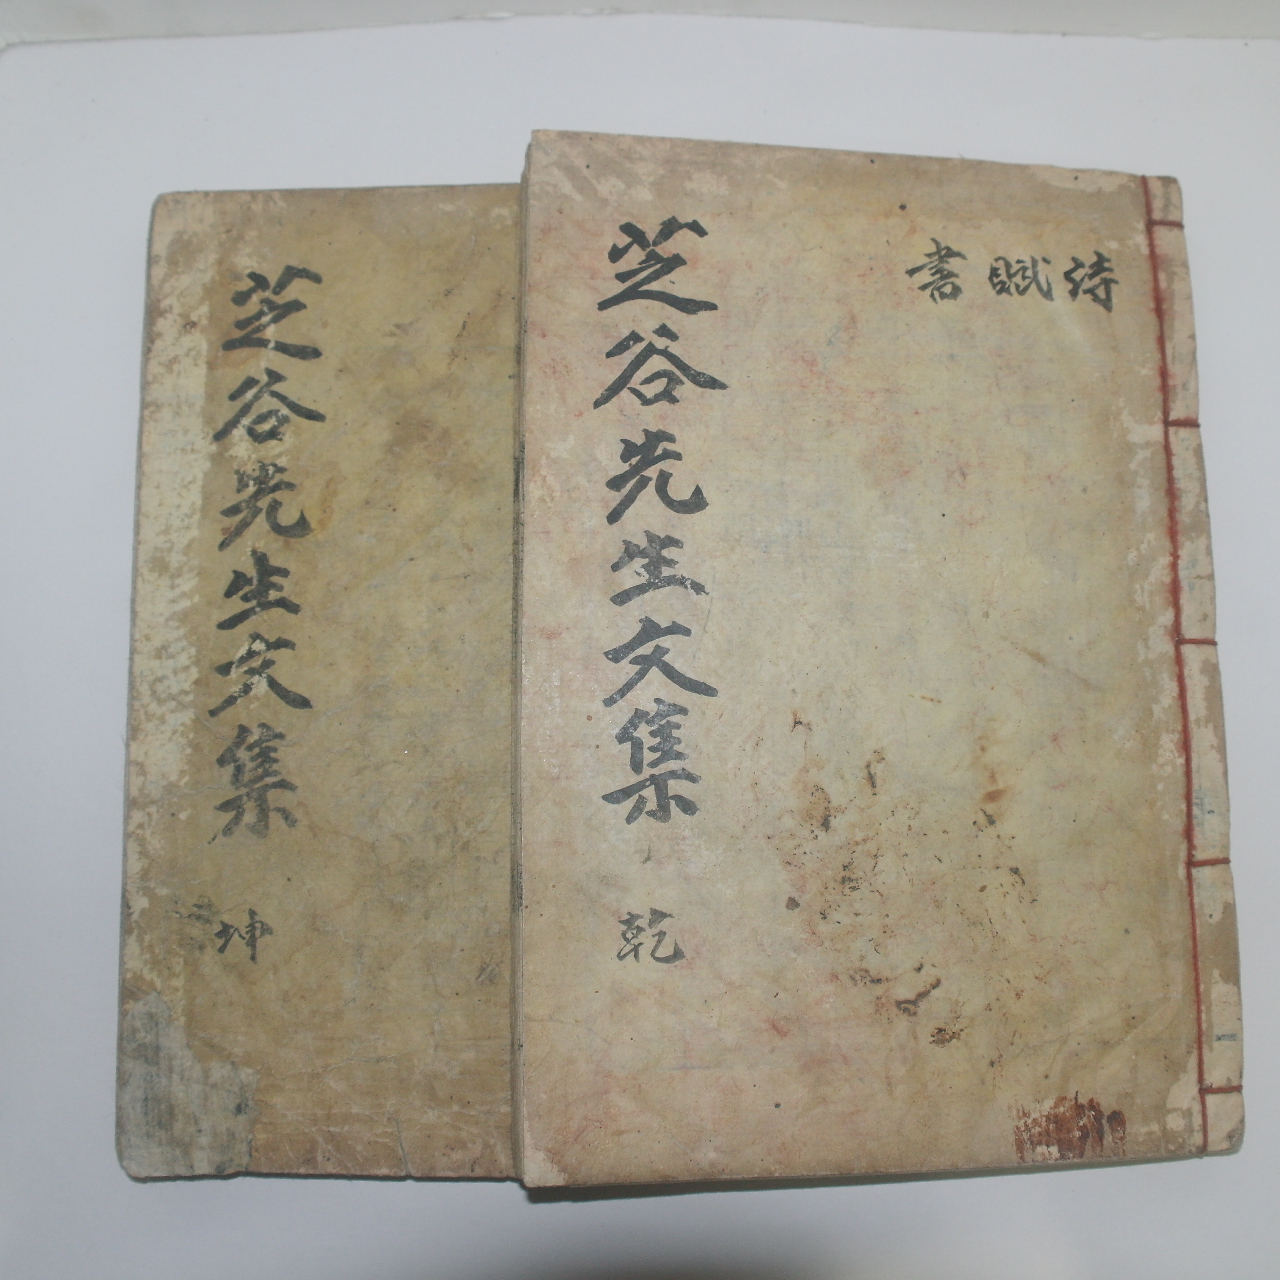 詩賦書
芝谷先生文集 乾
芝谷先生文集 坤